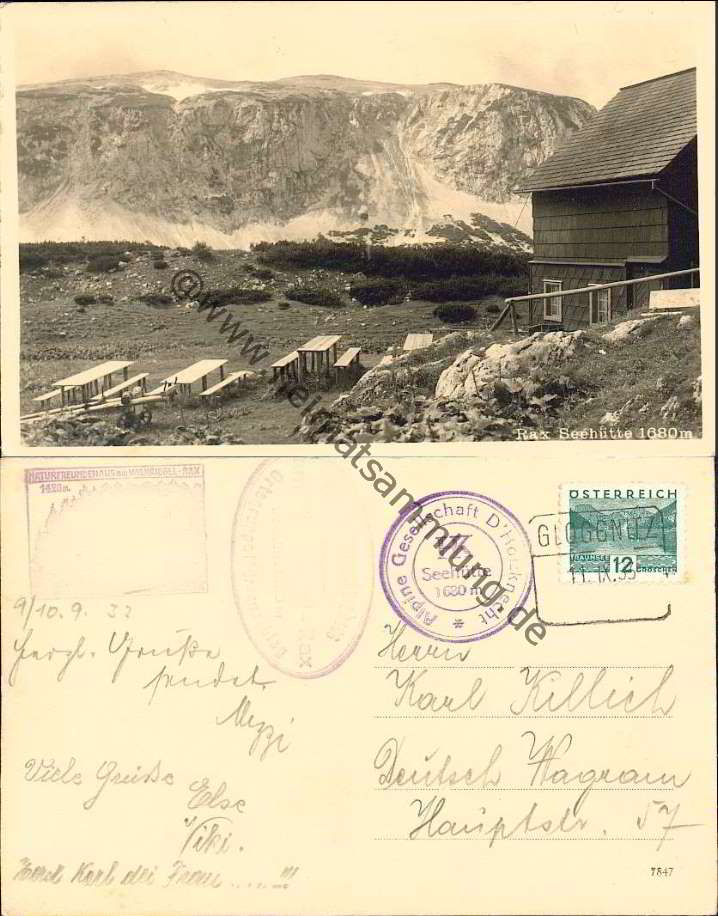 Rax Seehütte 1680 m
© www.heimatsammlung.de
NATURFREUNDEHAUS
RAX
Alpine Gesellschaft D'Holzknecht
Seehütte
1680 m
ÖSTERREICH
TRAUNSEE
12 GROSCHEN
GLOGGNITZ
11. IX. 33
9/10.9. 33
Herzl. Grüße
sendet
Mizzi
Viele Grüße
Else
Viki.
Herrn
Karl Killich
Deutsch Wagram
Hauptstr. 57
7847